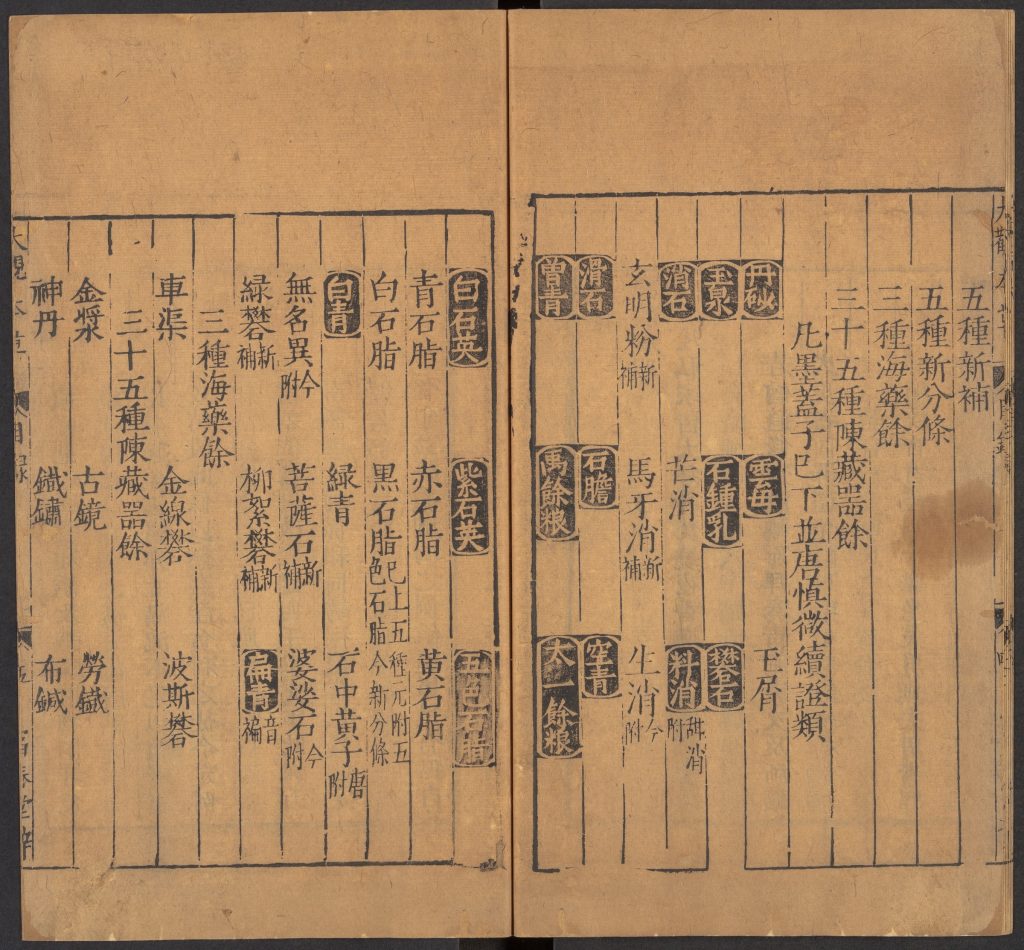 五種新補
五種新分條
三種海藥餘
三十五種陳藏器餘
凡墨蓋子巳下並唐慎微續證類
丹砂 雲母 玉屑
玉泉 石鍾乳 礬石
消石 芒消 朴消甜消附
玄明粉新補 馬牙消新補 生消今附
滑石 石膽 空青
曾青 禹餘粮 太一餘粮
白石英 紫石英 五色石脂
青石脂 赤石脂 黃石脂
白石脂 黑石脂巳上五種元附五色石脂今新分條
白青 綠青 石中黃子唐附
無名異今附 菩薩石新補 婆娑石今附
綠礬新補 柳絮礬新補 扁青音褊
三種海藥餘
車渠 金線礬 波斯礬
三十五種陳藏器餘
金漿 古鏡 勞鐵
神丹 鐵鏽 布鍼